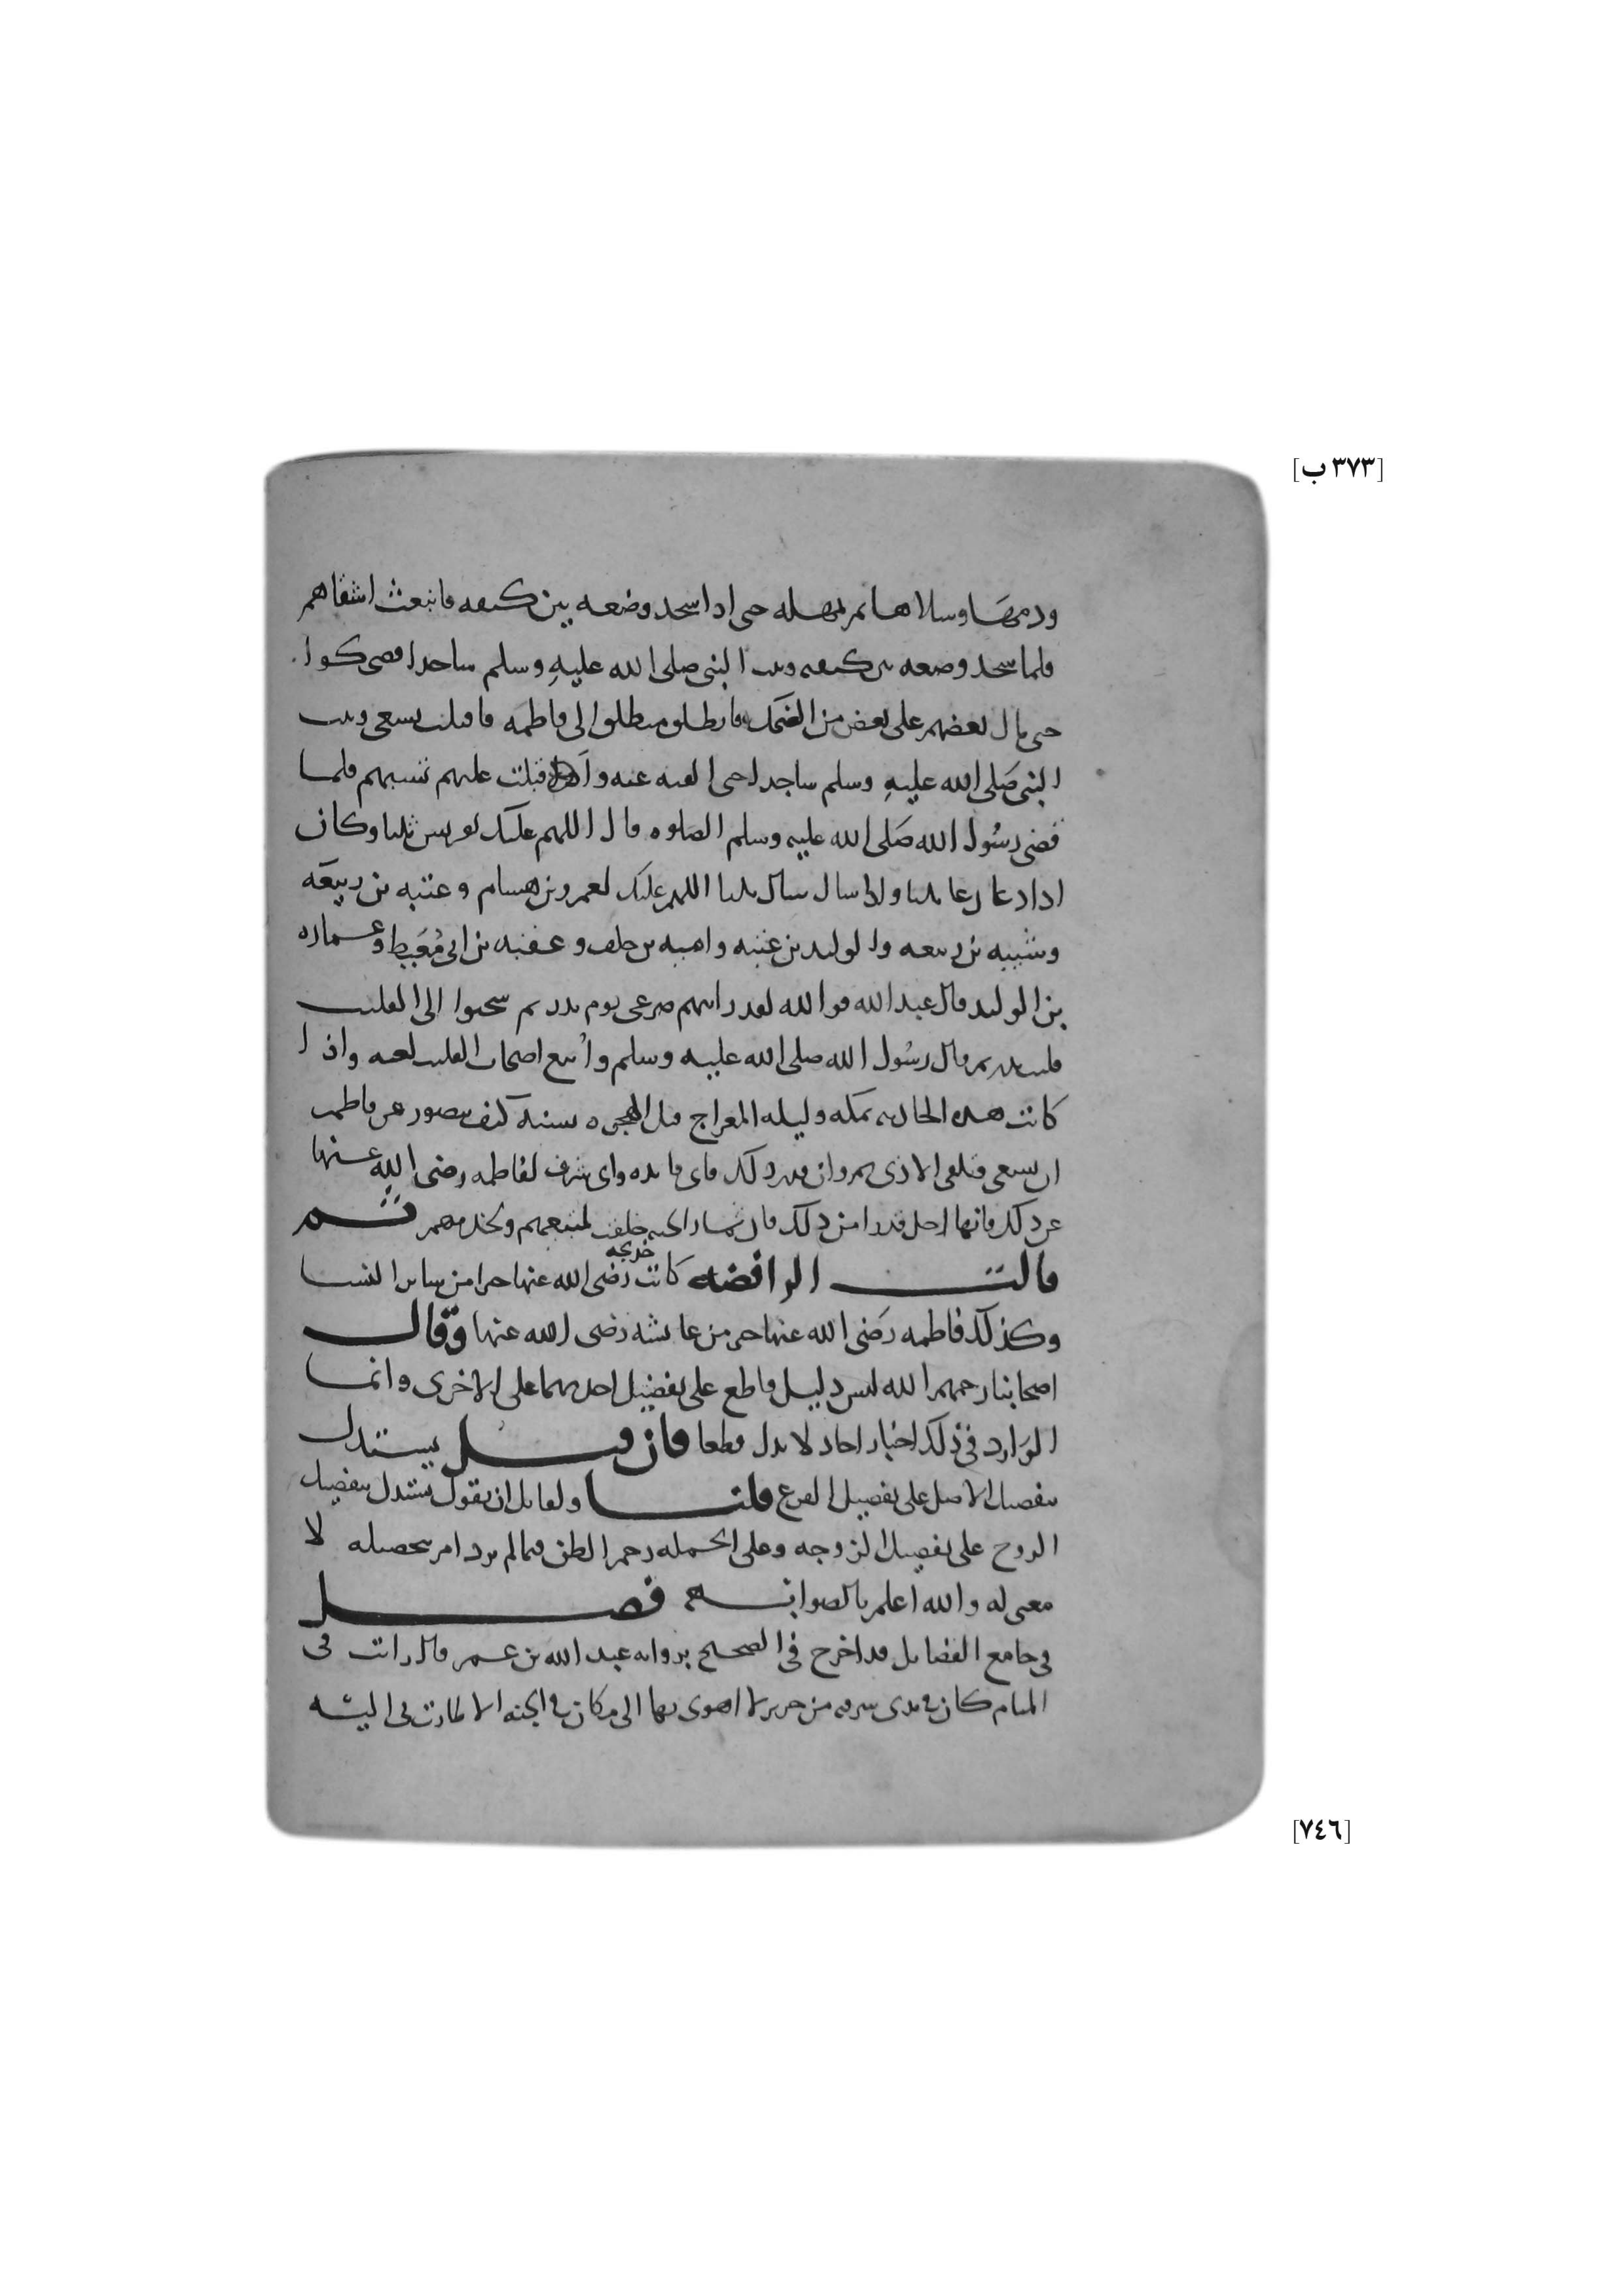 [٣٧٣ ب]
ودمها وسلاها ثم يمهله حتى اذا سجد وضعه بين كتفيه فانبعث اشقاهم
فلما سجد وضعه بين كتفيه وثبت النبي صلى الله عليه وسلم ساجدا فضحكوا
حتى مال بعضهم على بعض من الضحك فانطلق منطلق الى فاطمه فاقبلت تسعى وثبت
النبي صلى الله عليه وسلم ساجدا حتى القته عنه واقبلت عليهم تسبهم فلما
قضى رسول الله صلى الله عليه وسلم الصلوه قال اللهم عليك بقريش ثلثا وكان
اذا دعا دعا ثلثا واذا سال سال ثلثا اللهم عليك لعمرو بن هشام وعتبه بن ربيعه
وشيبه بن ربيعه والوليد بن عتبه واميه بن خلف وعقبه بن ابي معيط وعماره
بن الوليد قال عبد الله فوالله لقد رايتهم صرعى يوم بدر ثم سحبوا الى القليب
قليب بدر ثم قال رسول الله صلى الله عليه وسلم واتبع اصحاب القليب لعنه واذا
كانت هذه الحاله بمكه وليله المعراج قبل الهجره بسنه كيف يتصور من فاطمه
ان تسعى فتلقى الاذى وان قدر ذلك فاي فايده واي شرف لفاطمه رضي الله عنها
عن ذلك فانها اجل قدرا من ذلك فان ثمار الجنه خلقت لتنعمهم ثم
قالت الرافضه كانت خديجه رضي الله عنها خيرا من ساير النسا
وكذلك فاطمه رضي الله عنها خير من عايشه رضي الله عنها وقال
اصحابنا رحمهم الله ليس دليل قاطع على تفضيل احديهما على الاخرى وانما
الوارد في ذلك اخبار احاد لا تدل قطعا فان قيل يستدل
بتفضيل الاصل على تفضيل الفرع قلنا ولقايل ان يقول يستدل بتفضيل
الزوج على تفضيل الزوجه وعلى الجمله رجم الظن فيما لم يرد امر بتحصيله لا
معنى له والله اعلم بالصواب فصل
في جامع الفضايل قد اخرج في الصحيح بروايه عبد الله بن عمر قال رايت في
المنام كان في يدي سرقه من حرير لا اهوي بها الى مكان في الجنه الا طارت بي اليه
[٧٤٦]